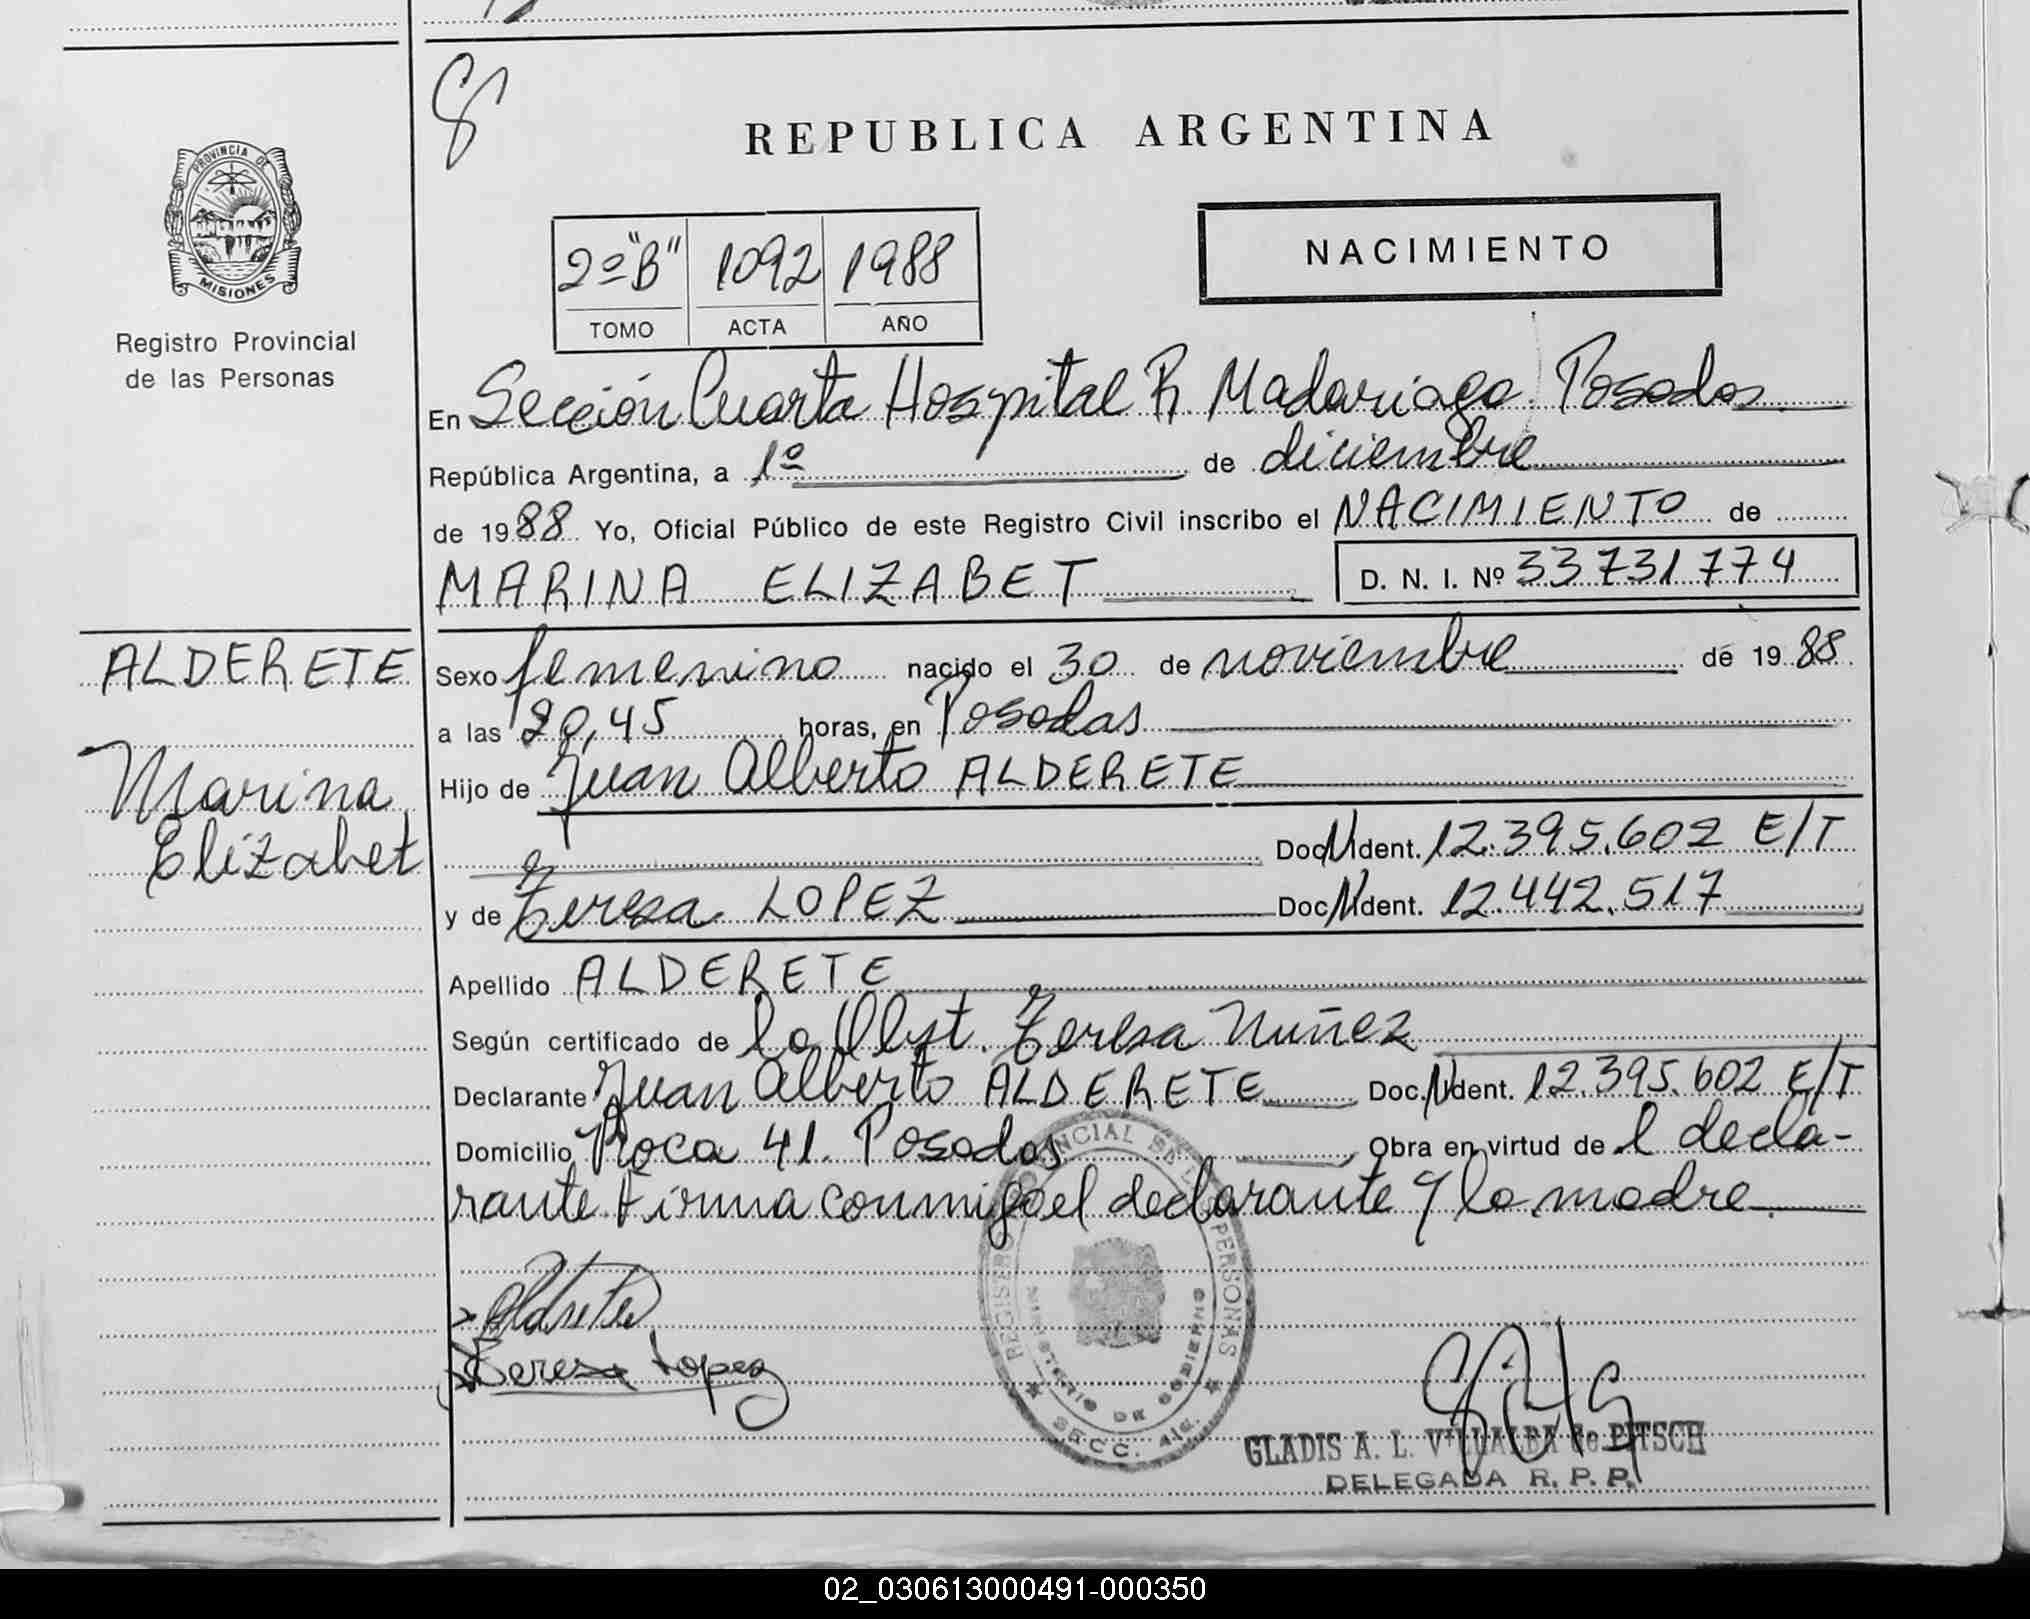 8
PROVINCIA DE
MISIONES
Registro Provincial
de las Personas
REPUBLICA ARGENTINA
2º "B" 1092 1988
TOMO ACTA AÑO
NACIMIENTO
En Sección Cuarta Hospital R. Madariaga. Posadas
República Argentina, a 1º de diciembre
de 1988 Yo, Oficial Público de este Registro Civil inscribo el NACIMIENTO de
MARINA ELIZABET D. N. I. Nº 33 731 774
ALDERETE
Marina
Elizabet
Sexo femenino nacido el 30 de noviembre de 1988
a las 20,45 horas, en Posadas
Hijo de Juan Alberto ALDERETE
Doc. N Ident. 12.395.602 E/T
y de Teresa LOPEZ Doc. N Ident. 12.442.517
Apellido ALDERETE
Según certificado de la Obst. Teresa Nuñez
Declarante Juan Alberto ALDERETE Doc. N Ident. 12.395.602 E/T
Domicilio Roca 41. Posadas Obra en virtud de l decla-
rante. Firma conmigo el declarante y la madre.
REGISTRO PROVINCIAL DE LAS PERSONAS
MINISTERIO DE GOBIERNO
SECC. 4ta.
Alderete
Teresa Lopez
GLADIS A. L. VILLALBA de PITSCH
DELEGADA R. P. P.
02_030613000491-000350